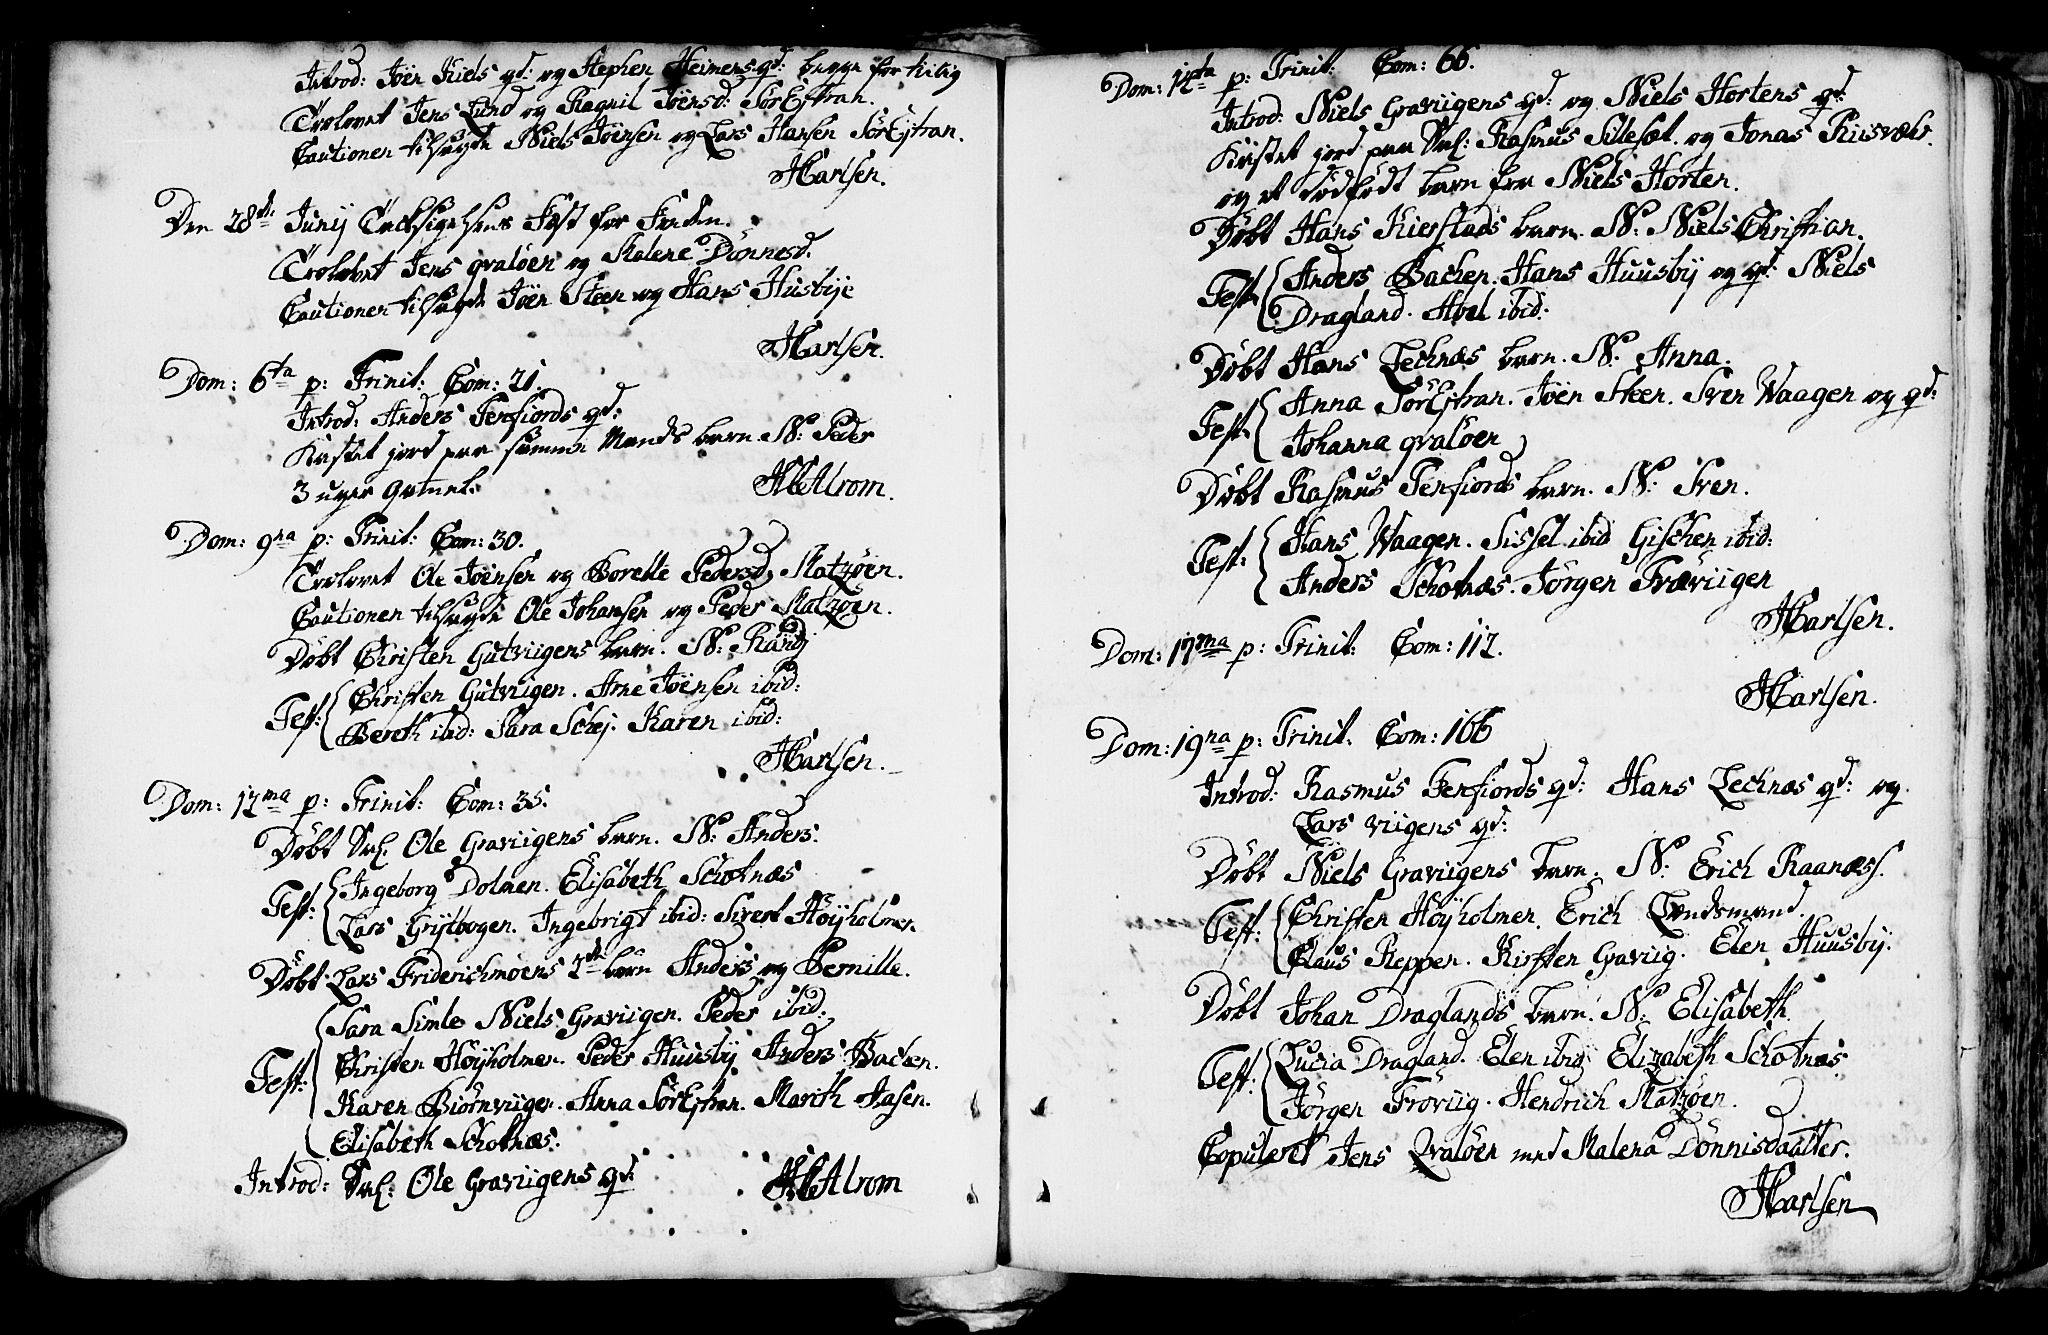 Introd: Joen Kiels qd: og Stephen Heimens qd: begge for tilig
Trolovet Jens Lund og Ragnil Joensd: SörEjtran.
Cautionen tilsagde Niels Joensen og Lars Hansen SörEjtran.
HCarlsen.
Den 28de Junij Tacksigelsens Fest for Freden.
Trolovet Jens qvalöen og Malene Dönnesd.
Cautionen tilsagde Joen Steen og Hans Husbye
HCarlsen.
Dom: 6ta p: Trinit: Com: 21.
Introd: Anders Terfiords qd:
Kastet jord paa samme Mands barn N: Peder
3 uger gamel.
Alrom.
Dom: 9na p: Trinit: Com: 30.
Trolovet Ole Joensen og Borelle Pedersd. Matzöen.
Cautionen tilsagde Ole Johansen og Peder Matzöen.
Döbt Christen Gutviigens barn. N: Randj
Test: Christen Gutviigen. Arne Joensen ibid:
Bereth ibid: Sara Schej. Karen ibid:
HCarlsen.
Dom: 12ma p: Trinit: Com: 35.
Döbt Sal. Ole Graviigens barn. N: Anders.
Test: Ingeborg Dolmen. Elisabeth Schotnæs
Lars Grytbogen. Ingebrigt ibid: Sivert Höyholmen.
Döbt Lars Friderichmoens 2de barn Anders og Pernille.
Sara Simle Niels Graviigen. Peder ibid:
Test: Christen Höyholmen. Peder Huusby Anders Bachen.
Karen Biörnviigen. Anna SörEjtran. Marith Aasen.
Elisabeth Schotnæs.
Introd: Sal: Ole Graviigens qd:
Alrom
Dom: 14ta p: Trinit: Com: 66.
Introd: Niels Graviigens qd: og Niels Hortens qd:
Kastet jord paa Sal: Rasmus Sillesæt. og Jonas Riisvær.
og et dødfødt barn fra Niels Horten.
Döbt Hans Kierstads barn. N: Niels Christian.
Test: Anders Bachen. Hans Huusby og qd: Niels
Dragland. Abel ibid:
Döbt Hans Lechnæs barn. N: Anna.
Test: Anna SörEjtran. Joen Steen. Sven Waagen og qd:
Johanna qvalöen
Döbt Rasmus Terfiords barn. N: Sven.
Test: Hans Waagen. Sissel ibid Gischen ibid:
Anders Schotnæs. Jörgen Fræviigen
HCarlsen.
Dom: 17ma p: Trinit: Com: 112.
HCarlsen.
Dom: 19na p: Trinit: Com: 166
Introd: Rasmus Terfiords qd: Hans Lechnæs qd: og
Lars viigens qd:
Döbt Niels Graviigens barn. N: Erich Raanæss.
Test: Christen Höyholmen. Erich Lendsmand.
Claus Reppen. Kirsten Graviig. Elen Huusby.
Döbt Johan Draglands barn. N: Elisabeth.
Test: Lucia Dragland. Elen ibid Elizabeth Schotnæs
Jörgen Fröviig. Hendrich Matzöen.
Copuleret Jens Qvalöen med Malena Dönnisdaatter.
HCarlsen